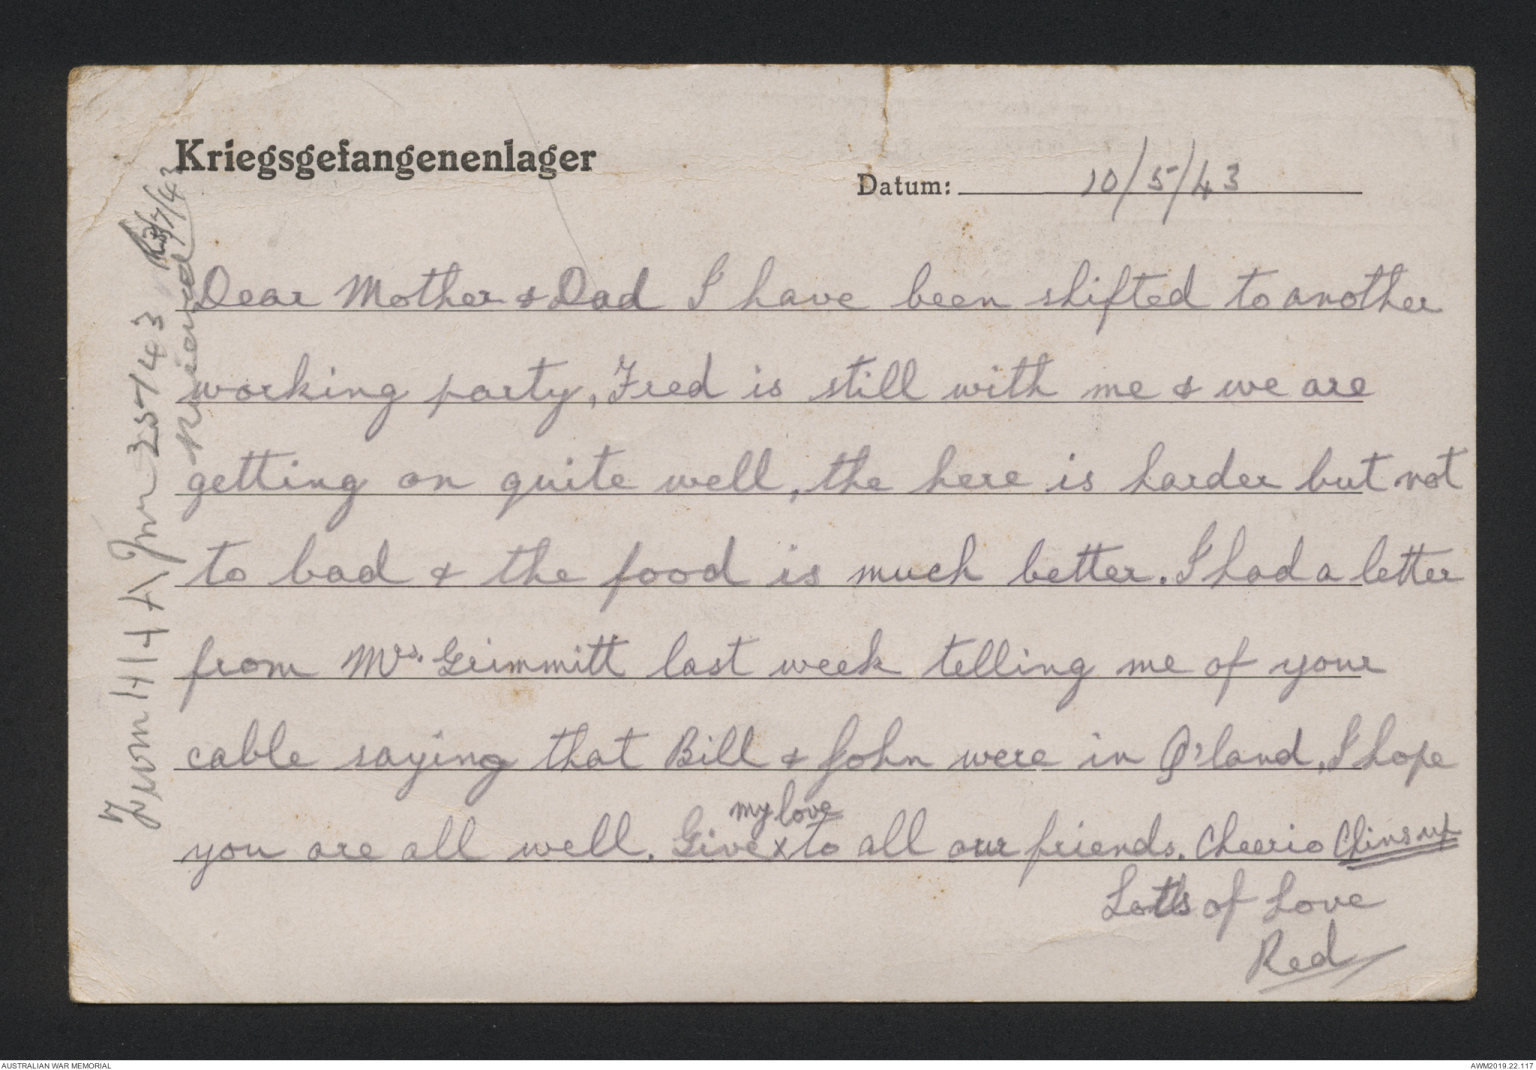 Kriegsgefangenenlager
Datum: 10/5/43
Dear Mother & Dad I have been shifted to another
working party, Fred is still with me & we are
getting on quite well, the here is harder but not
to bad & the food is much better. I had a letter
from Mrs. Grimmitt last week telling me of your
cable saying that Bill & John were in Q'land. I hope
my love
you are all well. Give x to all our friends. Cheerio Chins up
Lots of Love
Red
From 1414 A
Received /7/43
AUSTRALIAN WAR MEMORIAL
AWM2019.22.117